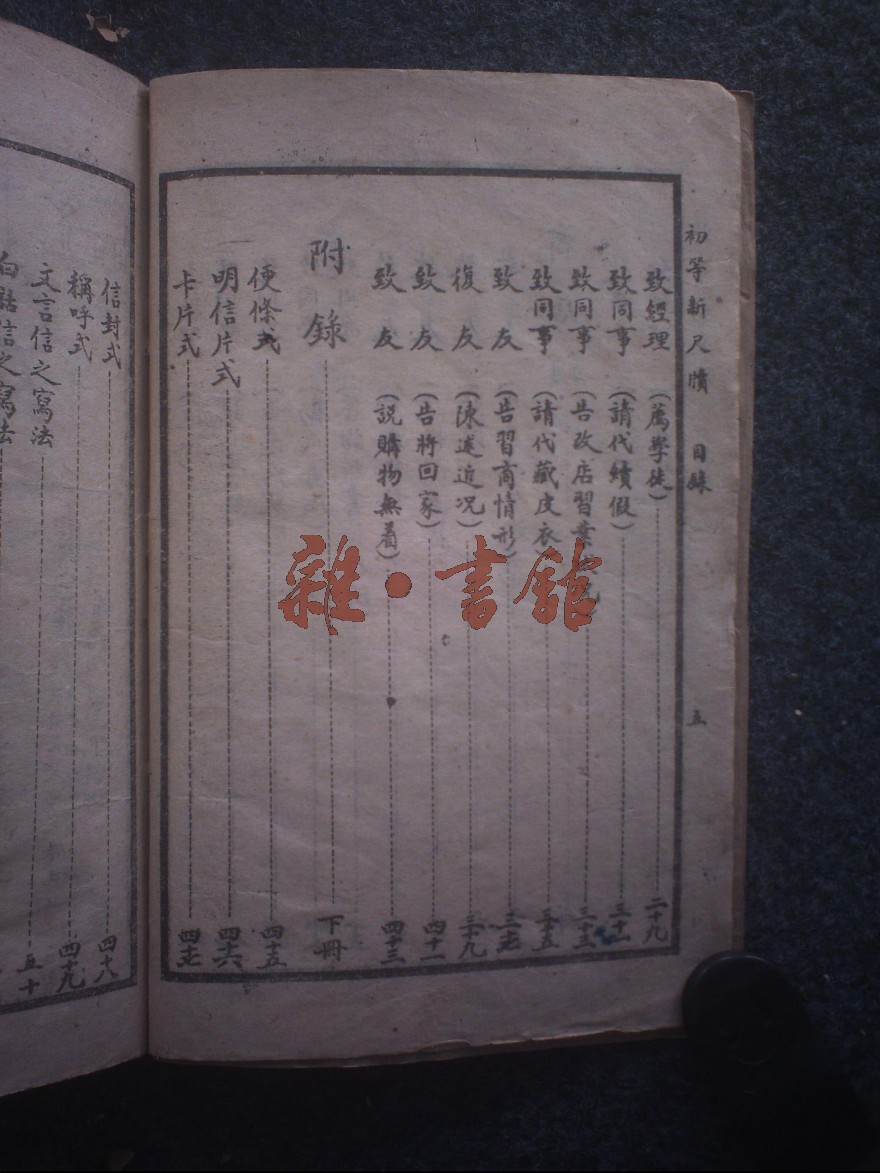 初等新尺牘 目錄 五
致經理(薦學徒)二十九
致同事(請代續假)三十一
致同事(告改店習業 三十三
致同事(請代藏皮衣 三十五
致友(告習商情形)三十七
復友(陳述近况)三十九
致友(告將回家)四十一
致友(説購物無着)四十三
附錄 下冊
便條式 四十五
明信片式 四十六
卡片式 四十七
信封式 四十八
稱呼式 四十九
文言信之寫法 五十
白話信之寫法
雜·書館